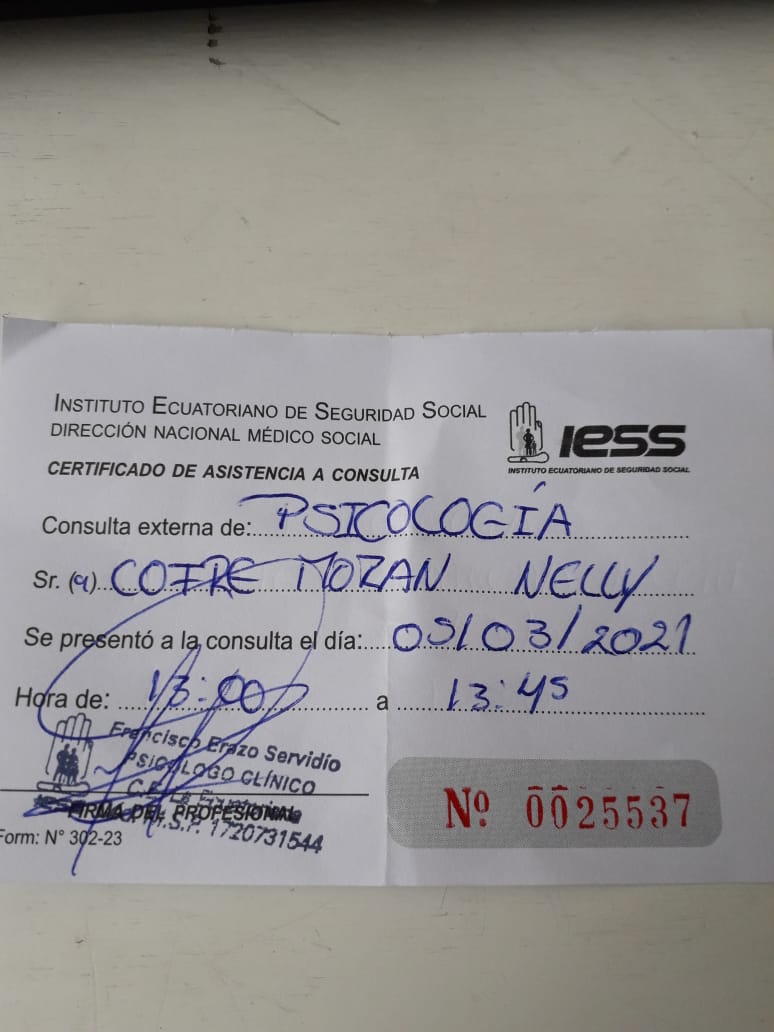 INSTITUTO ECUATORIANO DE SEGURIDAD SOCIAL
DIRECCIÓN NACIONAL MÉDICO SOCIAL
iess
INSTITUTO ECUATORIANO DE SEGURIDAD SOCIAL
CERTIFICADO DE ASISTENCIA A CONSULTA
Consulta externa de: PSICOLOGÍA
Sr. (a) COFRE MORAN NELLY
Se presentó a la consulta el día: 05/03/2021
Hora de: 13:00 a 13:45
Francisco Erazo Servidio
PSICÓLOGO CLÍNICO
FIRMA DEL PROFESIONAL
M.S.P. 1720731544
Form: N° 302-23
Nº 0025537